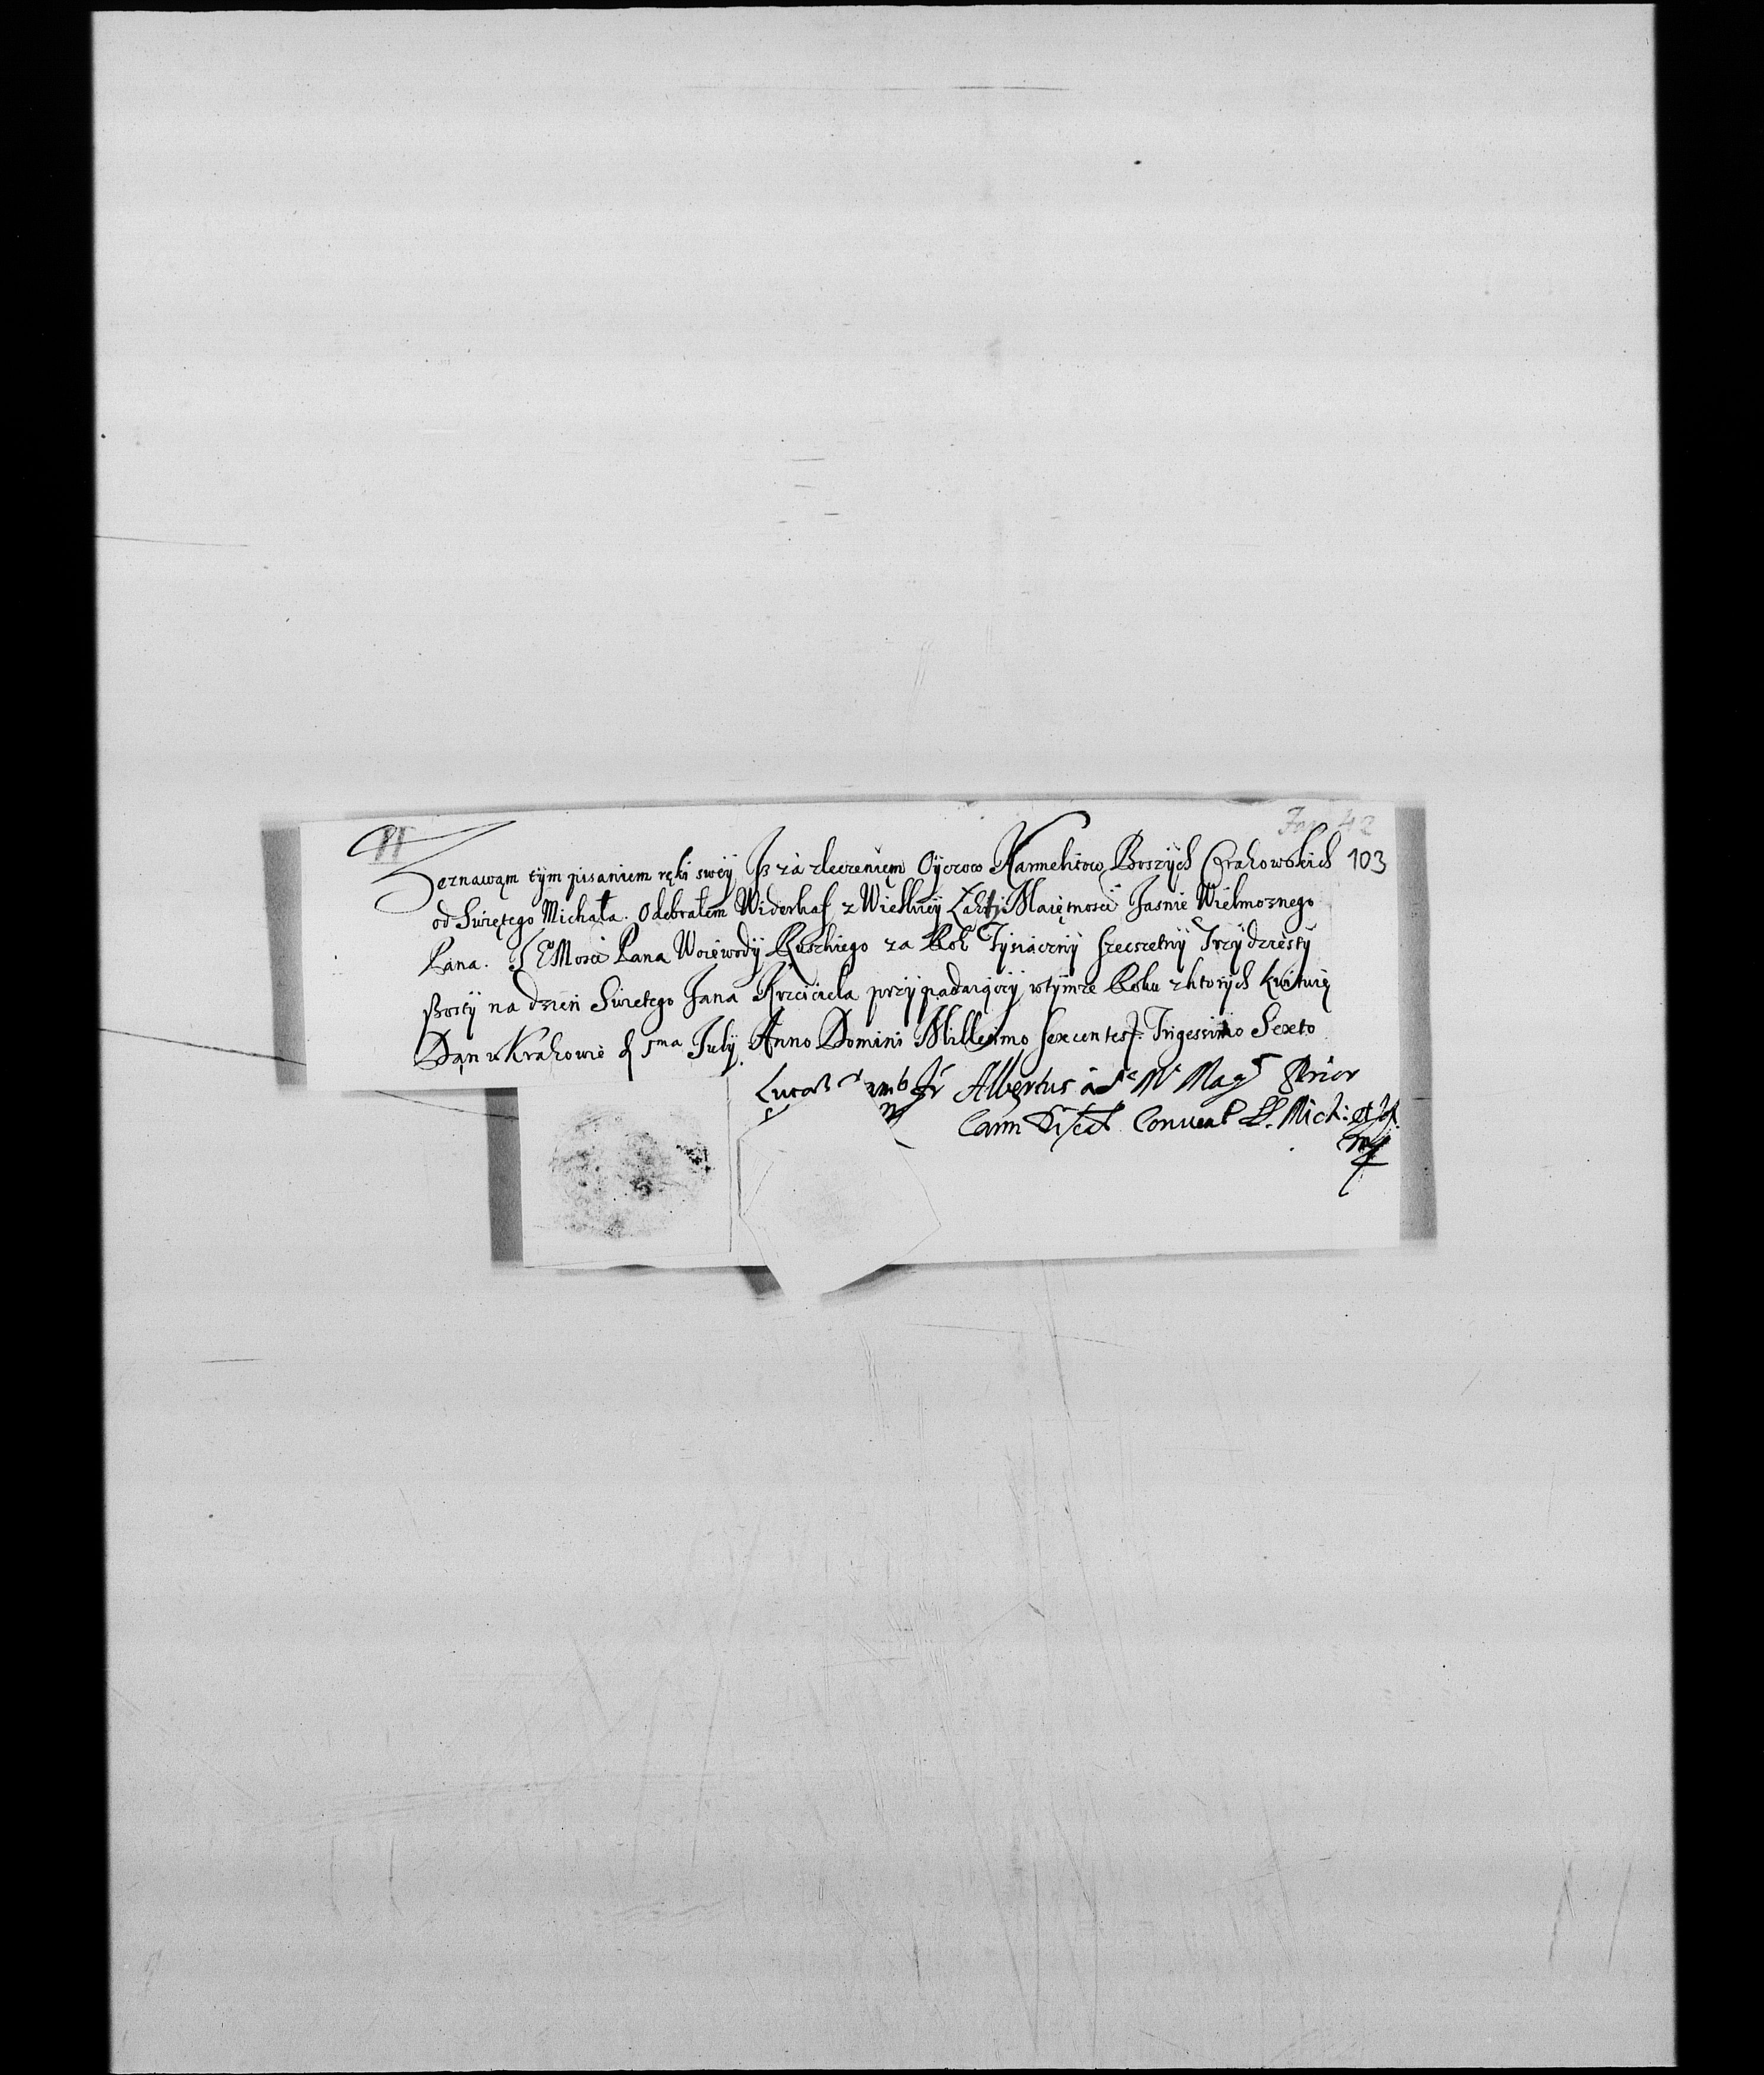 II
Jan 42
Zeznawąm tym pisaniem ręki swey Jß zá zleczenięm Oyczow Karmelitow Boszych Crakowskich 103
od Swiętego Michała. Odebrałem Widerkaf z Wielkiey Maiętnosci Jasnie Wielmoznego
Pana. JEMosci Pana Woiewody Ruskiego za Rok Tysiaczny szeszetny Trzydziesty
szosty na dzień Swietego Jana Krzciciela przypadaiączy w tymze Roku z ktorych kwituię
Dąn w Krakowie d 5ma July Anno Domini Millesimo sexcentes: Trigessimo Sexto
Lucas Fr Albertus à Prior
Carm Discal. Conuent SS. Mich: et Jos.
mp